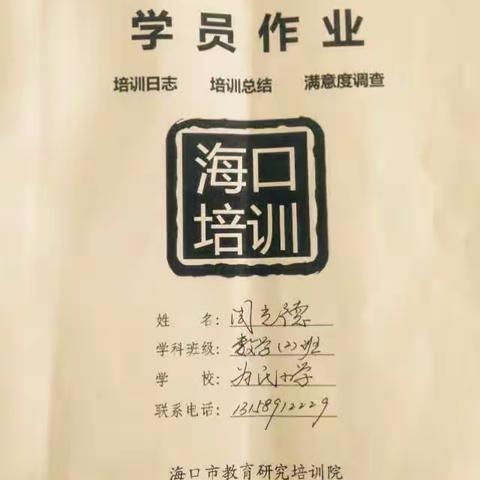 学员作业
培训日志 培训总结 满意度调查
海口
培训
姓 名：周克德
学科班级：数学(2)班
学 校：为民小学
联系电话：13158912229
海口市教育研究培训院